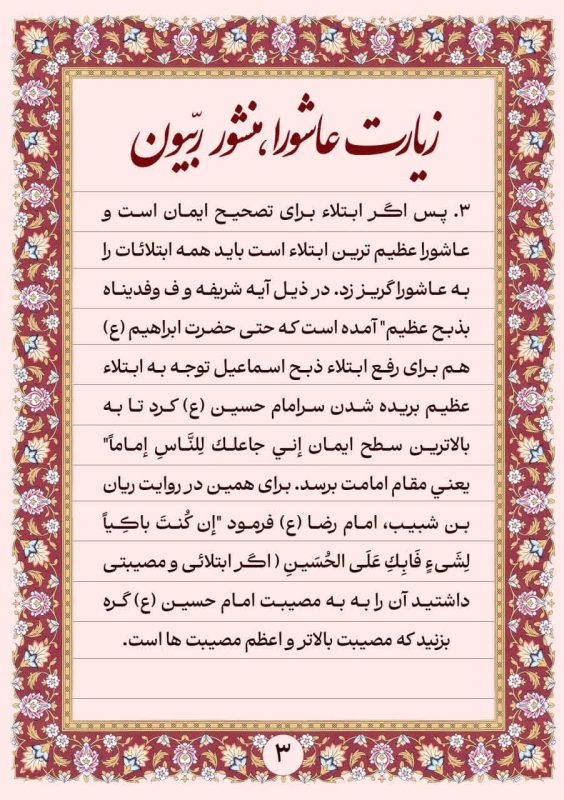 زیارت عاشورا، منشور ربّیون
۳. پس اگر ابتلاء برای تصحیح ایمان است و
عاشورا عظیم ترین ابتلاء است باید همه ابتلائات را
به عاشورا گریز زد. در ذیل آیه شریفه و ف وفدیناه
بذبح عظیم" آمده است که حتی حضرت ابراهیم (ع)
هم برای رفع ابتلاء ذبح اسماعیل توجه به ابتلاء
عظیم بریده شدن سرامام حسین (ع) کرد تا به
بالاترین سطح ایمان إني جاعلك لِلنَّاسِ إماماً"
یعني مقام امامت برسد. برای همین در روایت ریان
بن شبیب، امام رضا (ع) فرمود "إن كُنتَ باكِياً
لِشَیءٍ فَابكِ عَلَی الحُسَینِ ( اگر ابتلائی و مصیبتی
داشتید آن را به به مصیبت امام حسین (ع) گره
بزنید که مصیبت بالاتر و اعظم مصیبت ها است.
۳